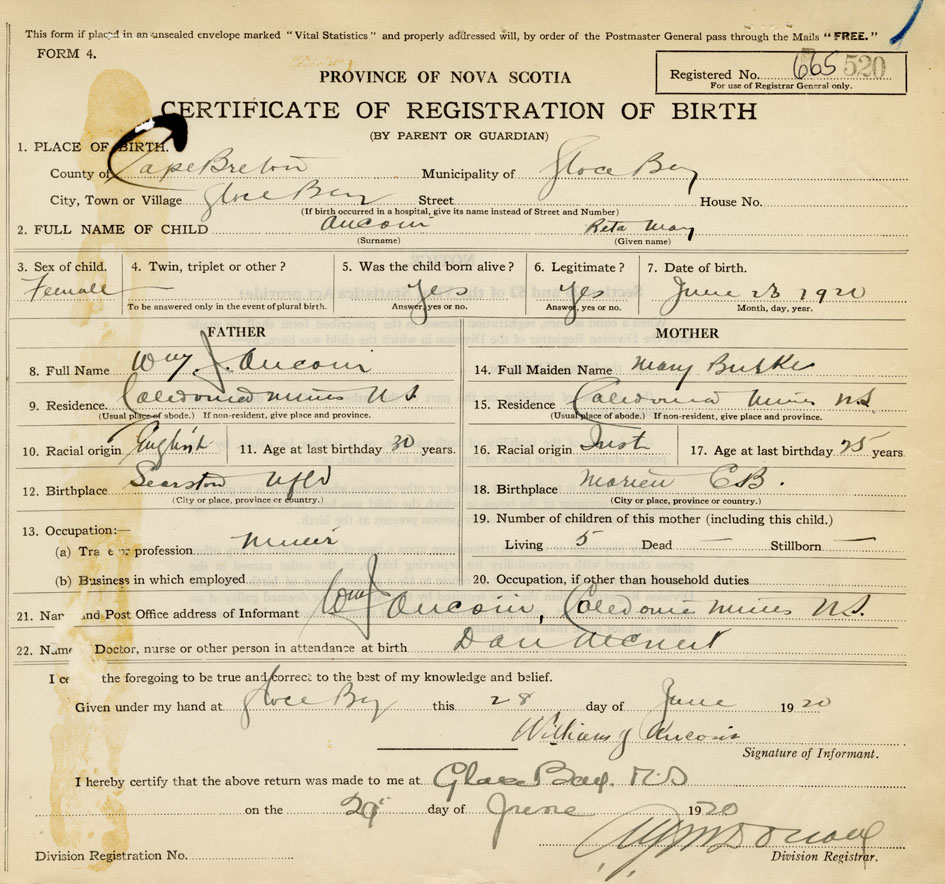 This form if placed in an unsealed envelope marked "Vital Statistics" and properly addressed will, by order of the Postmaster General pass through the Mails "FREE."
FORM 4.
PROVINCE OF NOVA SCOTIA
Registered No. 665 520
For use of Registrar General only.
CERTIFICATE OF REGISTRATION OF BIRTH
(BY PARENT OR GUARDIAN)
1. PLACE OF BIRTH.
County of Cape Breton Municipality of Glace Bay
City, Town or Village Glace Bay Street House No.
(If birth occurred in a hospital, give its name instead of Street and Number)
2. FULL NAME OF CHILD Aucoin Reta May
(Surname) (Given name)
3. Sex of child. 4. Twin, triplet or other? 5. Was the child born alive? 6. Legitimate? 7. Date of birth.
Female — yes yes June 23 1920
To be answered only in the event of plural birth. Answer, yes or no. Answer, yes or no. Month, day, year.
FATHER MOTHER
8. Full Name Wm J. Aucoin 14. Full Maiden Name Mary Burke
9. Residence. Caledonia Mines N S 15. Residence Caledonia Mines N S
(Usual place of abode.) If non-resident, give place and province. (Usual place of abode.) If non-resident, give place and province.
10. Racial origin English 11. Age at last birthday 30 years. 16. Racial origin 17. Age at last birthday 25 years.
12. Birthplace Searston Nfld 18. Birthplace C.B.
(City or place, province or country.) (City or place, province or country.)
13. Occupation:— 19. Number of children of this mother (including this child.)
(a) Tra e or profession. Miner Living 5 Dead — Stillborn —
(b) Business in which employed 20. Occupation, if other than household duties
21. Nar and Post Office address of Informant Wm J Aucoin, Caledonia Mines N.S.
22. Name Doctor, nurse or other person in attendance at birth Dan
I ce the foregoing to be true and correct to the best of my knowledge and belief.
Given under my hand at Glace Bay this 28 day of June 1920
William J Aucoin
Signature of Informant.
I hereby certify that the above return was made to me at Glace Bay. N.S
on the 29 day of June 1920
Division Registration No. Division Registrar.